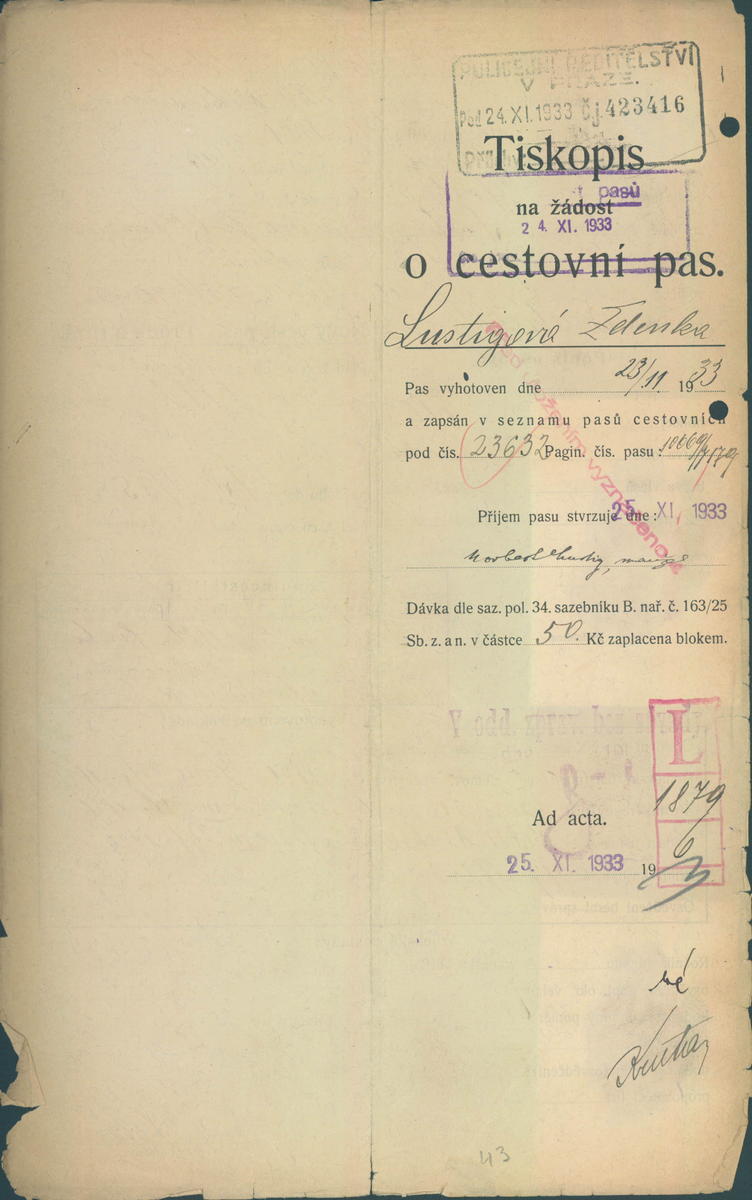 POLICEJNÍ ŘEDITELSTVÍ
V PRAZE.
Pod 24. XI. 1933 Č.j. 423416
Tiskopis
pasů
na žádost
24. XI. 1933
o cestovní pas.
Lustigová Zdenka
Pas vyhotoven dne 23/11 1933
a zapsán v seznamu pasů cestovních
pod čís. 23632 Pagin. čís. pasu:
Příjem pasu stvrzuje dne: 25. XI. 1933
Norbert Lustig, manžel
Dávka dle saz. pol. 34. sazebníku B. nař. č. 163/25
Sb. z. a n. v částce 50. Kč zaplacena blokem.
L
1879
Ad acta.
6
25. XI. 1933 19
43